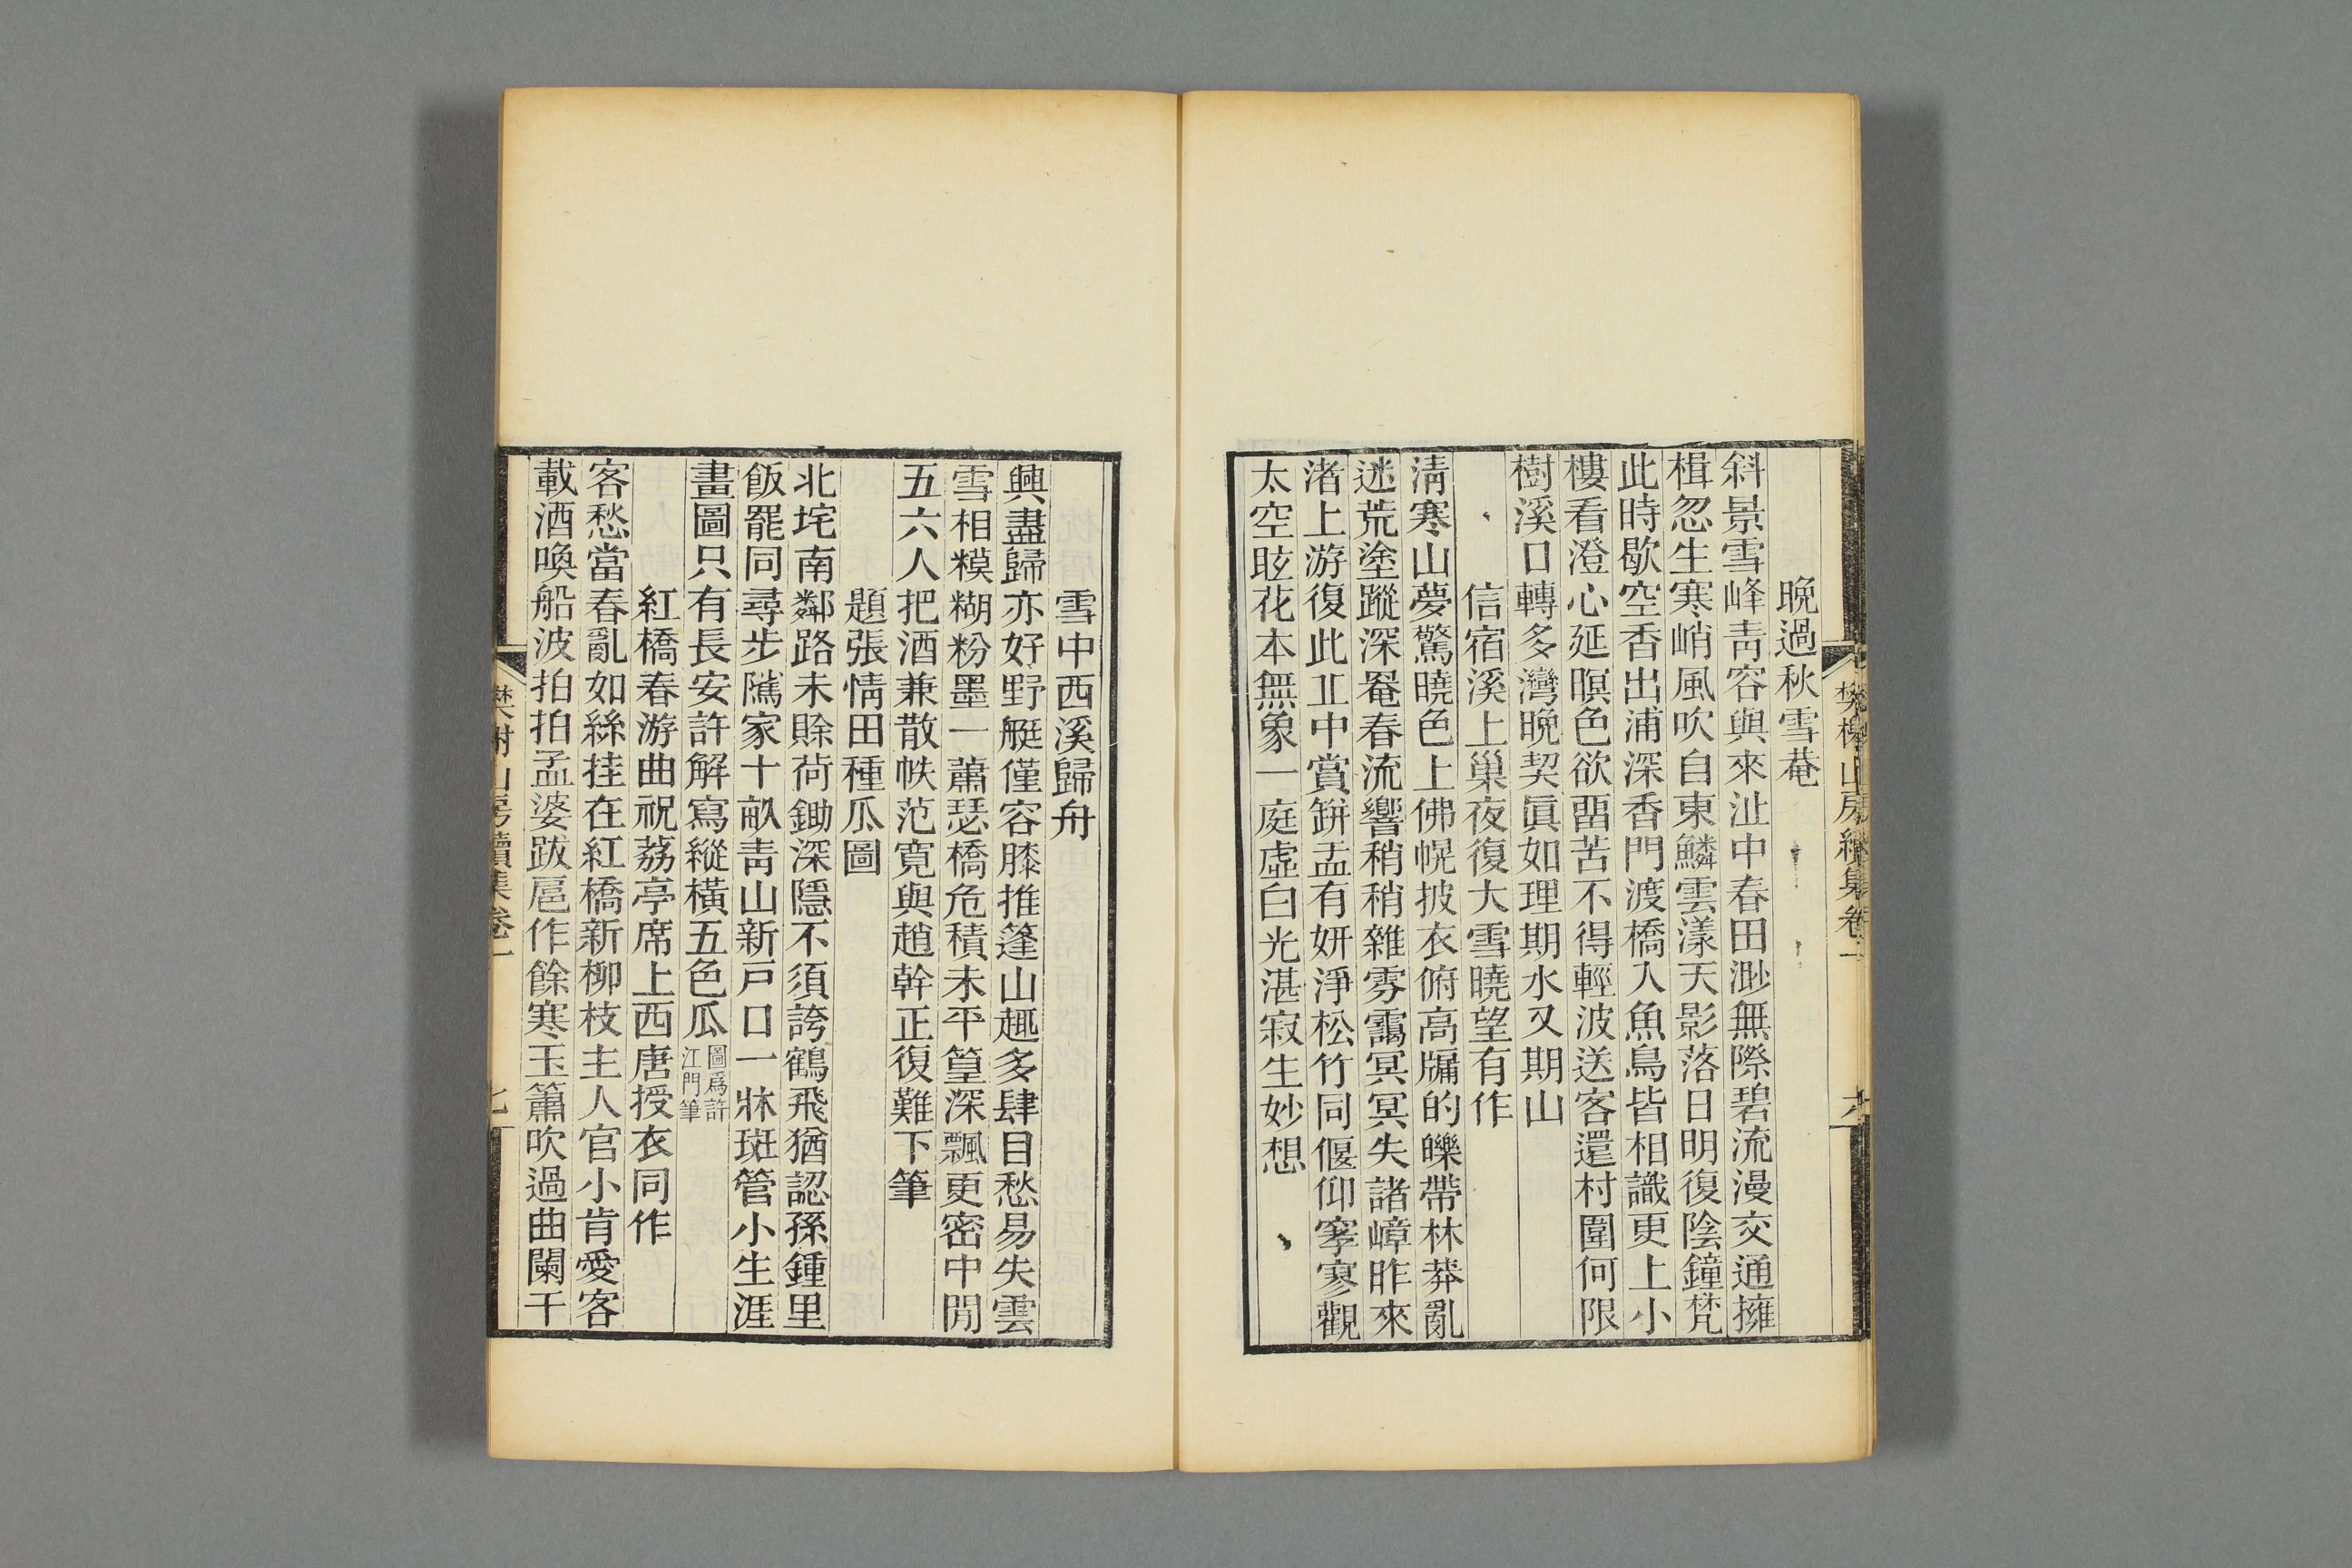 樊榭山房續集卷一 六
晚過秋雪菴
斜景雪峰靑容與來沚中春田渺無際碧流漫交通擁
楫忽生寒峭風吹自東鱗雲漾天影落日明復陰鐘梵
此時歇空香出浦深香門渡橋入魚鳥皆相識更上小
樓看澄心延暝色欲畱苦不得輕波送客還村圍何限
樹溪口轉多灣晚契眞如理期水又期山
信宿溪上巢夜復大雪曉望有作
淸寒山夢驚曉色上佛幌披衣俯高牖的皪帶林莽亂
迷荒塗蹤深罨春流響稍稍雜雰霭冥冥失諸嶂昨來
渚上游復此丄中賞缾盂有妍淨松竹同偃仰寥寥觀
太空眩花本無象一庭虛白光湛寂生妙想
雪中西溪歸舟
興盡歸亦好野艇僅容膝推篷山趣多肆目愁易失雲
雪相糢糊粉墨一蕭瑟橋危積未平篁深飄更密中閒
五六人把酒兼散帙范寬與趙幹正復難下筆
題張情田種瓜圖
北垞南鄰路未賒荷鋤深隱不須誇鶴飛猶認孫鍾里
飯罷同尋步隲家十畝靑山新戸口一牀斑管小生涯
畫圖只有長安許解寫縱橫五色瓜圖爲許江門筆
紅橋春游曲祝荔亭席上西唐授衣同作
客愁當春亂如絲挂在紅橋新柳枝主人官小肯愛客
載酒喚船波拍拍孟婆跋扈作餘寒玉簫吹過曲闌干
樊榭山房續集卷一 七